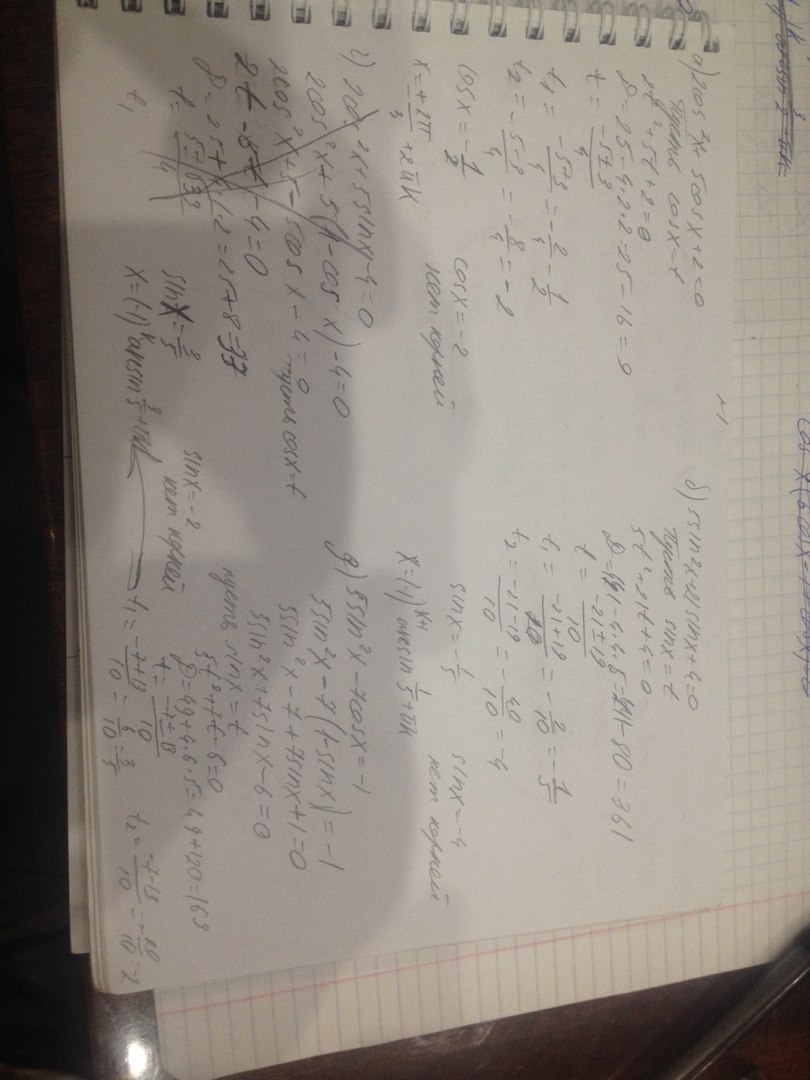 а) 2cos²x + 5cosx + 2 = 0
пусть cosx = t
2t² + 5t + 2 = 0
D = 25 - 4·2·2 = 25 - 16 = 9
t = (-5±3)/4
t₁ = (-5+3)/4 = -2/4 = -1/2
t₂ = (-5-3)/4 = -8/4 = -2
cosx = -1/2
cosx = -2
нет корней
x = ±2π/3 + 2πk
б) 5sin²x + 21sinx + 4 = 0
пусть sinx = t
5t² + 21t + 4 = 0
D = 441 - 4·4·5 = 441 - 80 = 361
t = (-21±19)/10
t₁ = (-21+19)/10 = -2/10 = -1/5
t₂ = (-21-19)/10 = -40/10 = -4
sinx = -1/5
sinx = -4
нет корней
x = (-1)ᵏ⁺¹ arcsin 1/5 + πk
г) 2cos²x + 5sinx - 4 = 0
2cos²x + 5(1 - cosx) - 4 = 0
2cos²x + 5 - 5cosx - 4 = 0
пусть cosx = t
t₁
д) 5sin²x - 7cosx = -1
5sin²x - 7(1 - sinx) = -1
5sin²x - 7 + 7sinx + 1 = 0
5sin²x + 7sinx - 6 = 0
пусть sinx = t
5t² + 7t - 6 = 0
D = 49 + 4·6·5 = 49 + 120 = 169
t = (-7±13)/10
t₁ = (-7+13)/10 = 6/10 = 3/5
t₂ = (-7-13)/10 = -20/10 = -2
sinx = 3/5
sinx = -2
нет корней
x = (-1)ᵏ arcsin 3/5 + πk